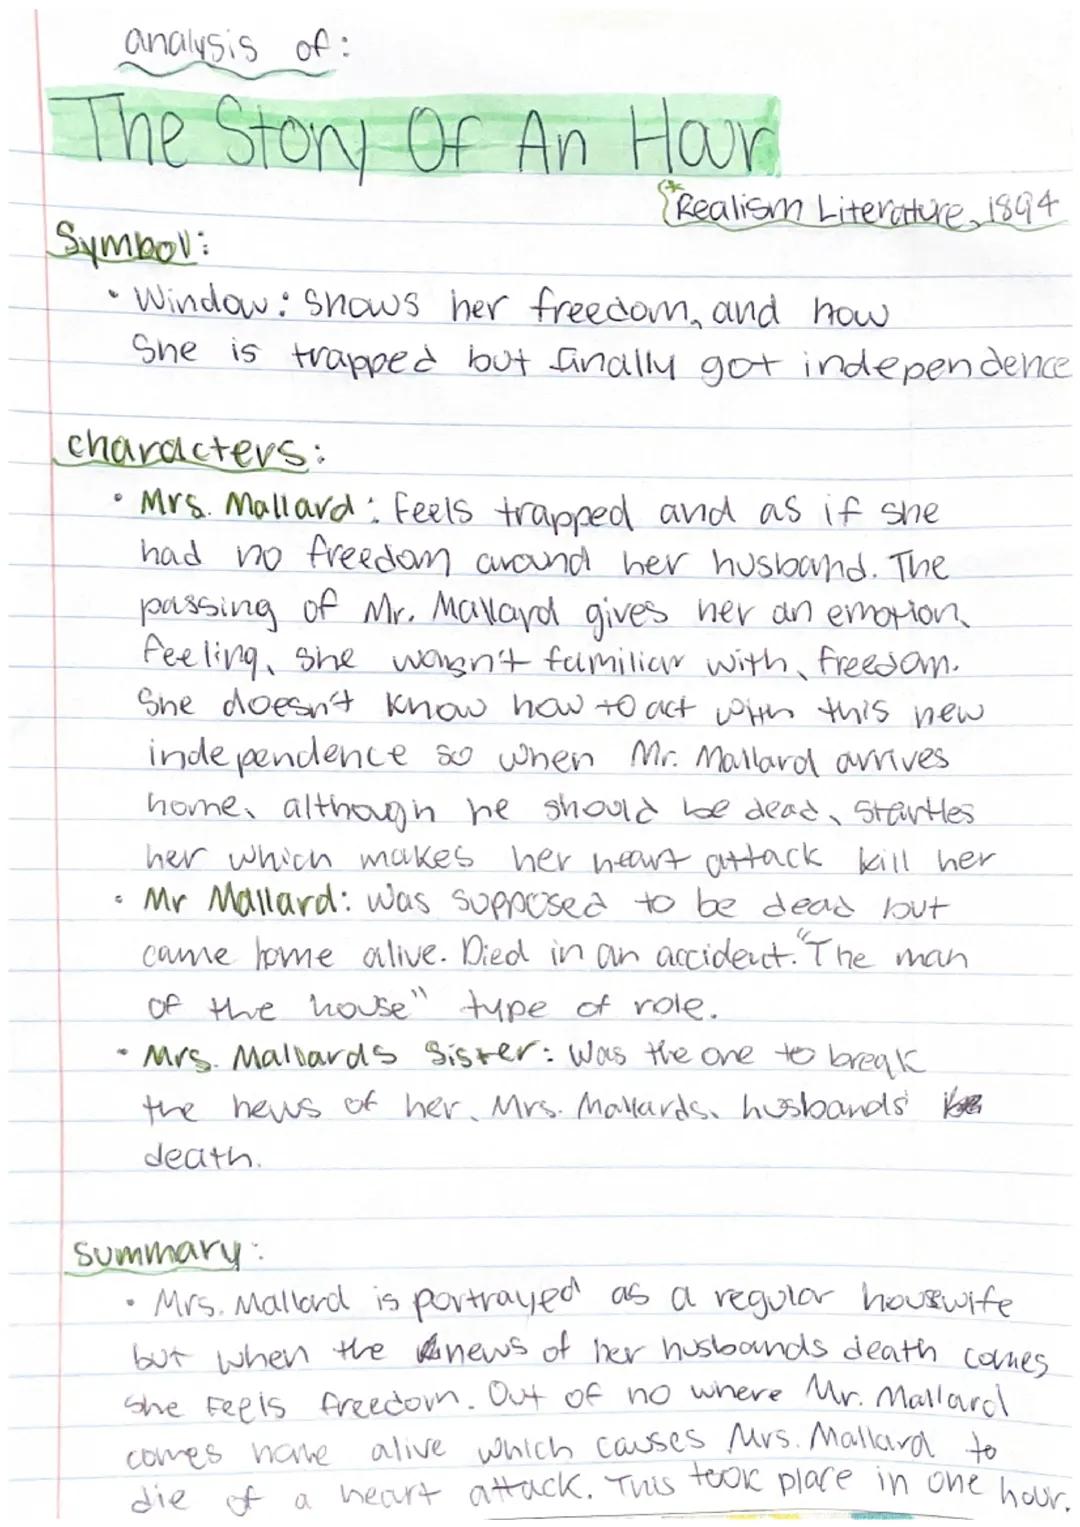 analysis of:
The Story Of An Hour
*Realism Literature, 1894
Symbol:
• Window: Shows her freedom, and how
She is trapped but finally got independence
characters:
• Mrs. Mallard: Feels trapped and as if she
had no freedom around her husband. The
passing of Mr. Mallard gives her an emotion,
feeling, she wasn't familiar with, freedom.
She doesn't know how to act with this new
independence so when Mr. Mallard arrives
home, although he should be dead, startles
her which makes her heart attack kill her
• Mr Mallard: Was supposed to be dead but
came home alive. Died in an accident. "The man
of the house" type of role.
• Mrs. Mallards Sister: Was the one to break
the news of her, Mrs. Mallards, husbands'
death.
Summary:
• Mrs. Mallard is portrayed as a regular housewife
but when the news of her husbands death comes
she feels freedom. Out of no where Mr. Mallard
comes home alive which causes Mrs. Mallard to
die of a heart attack. This took place in one hour.